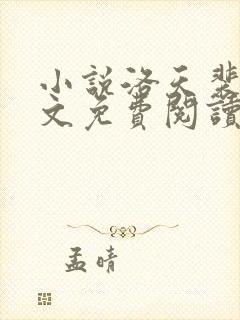 小說洛天斐
文免費閱讀
孟晴